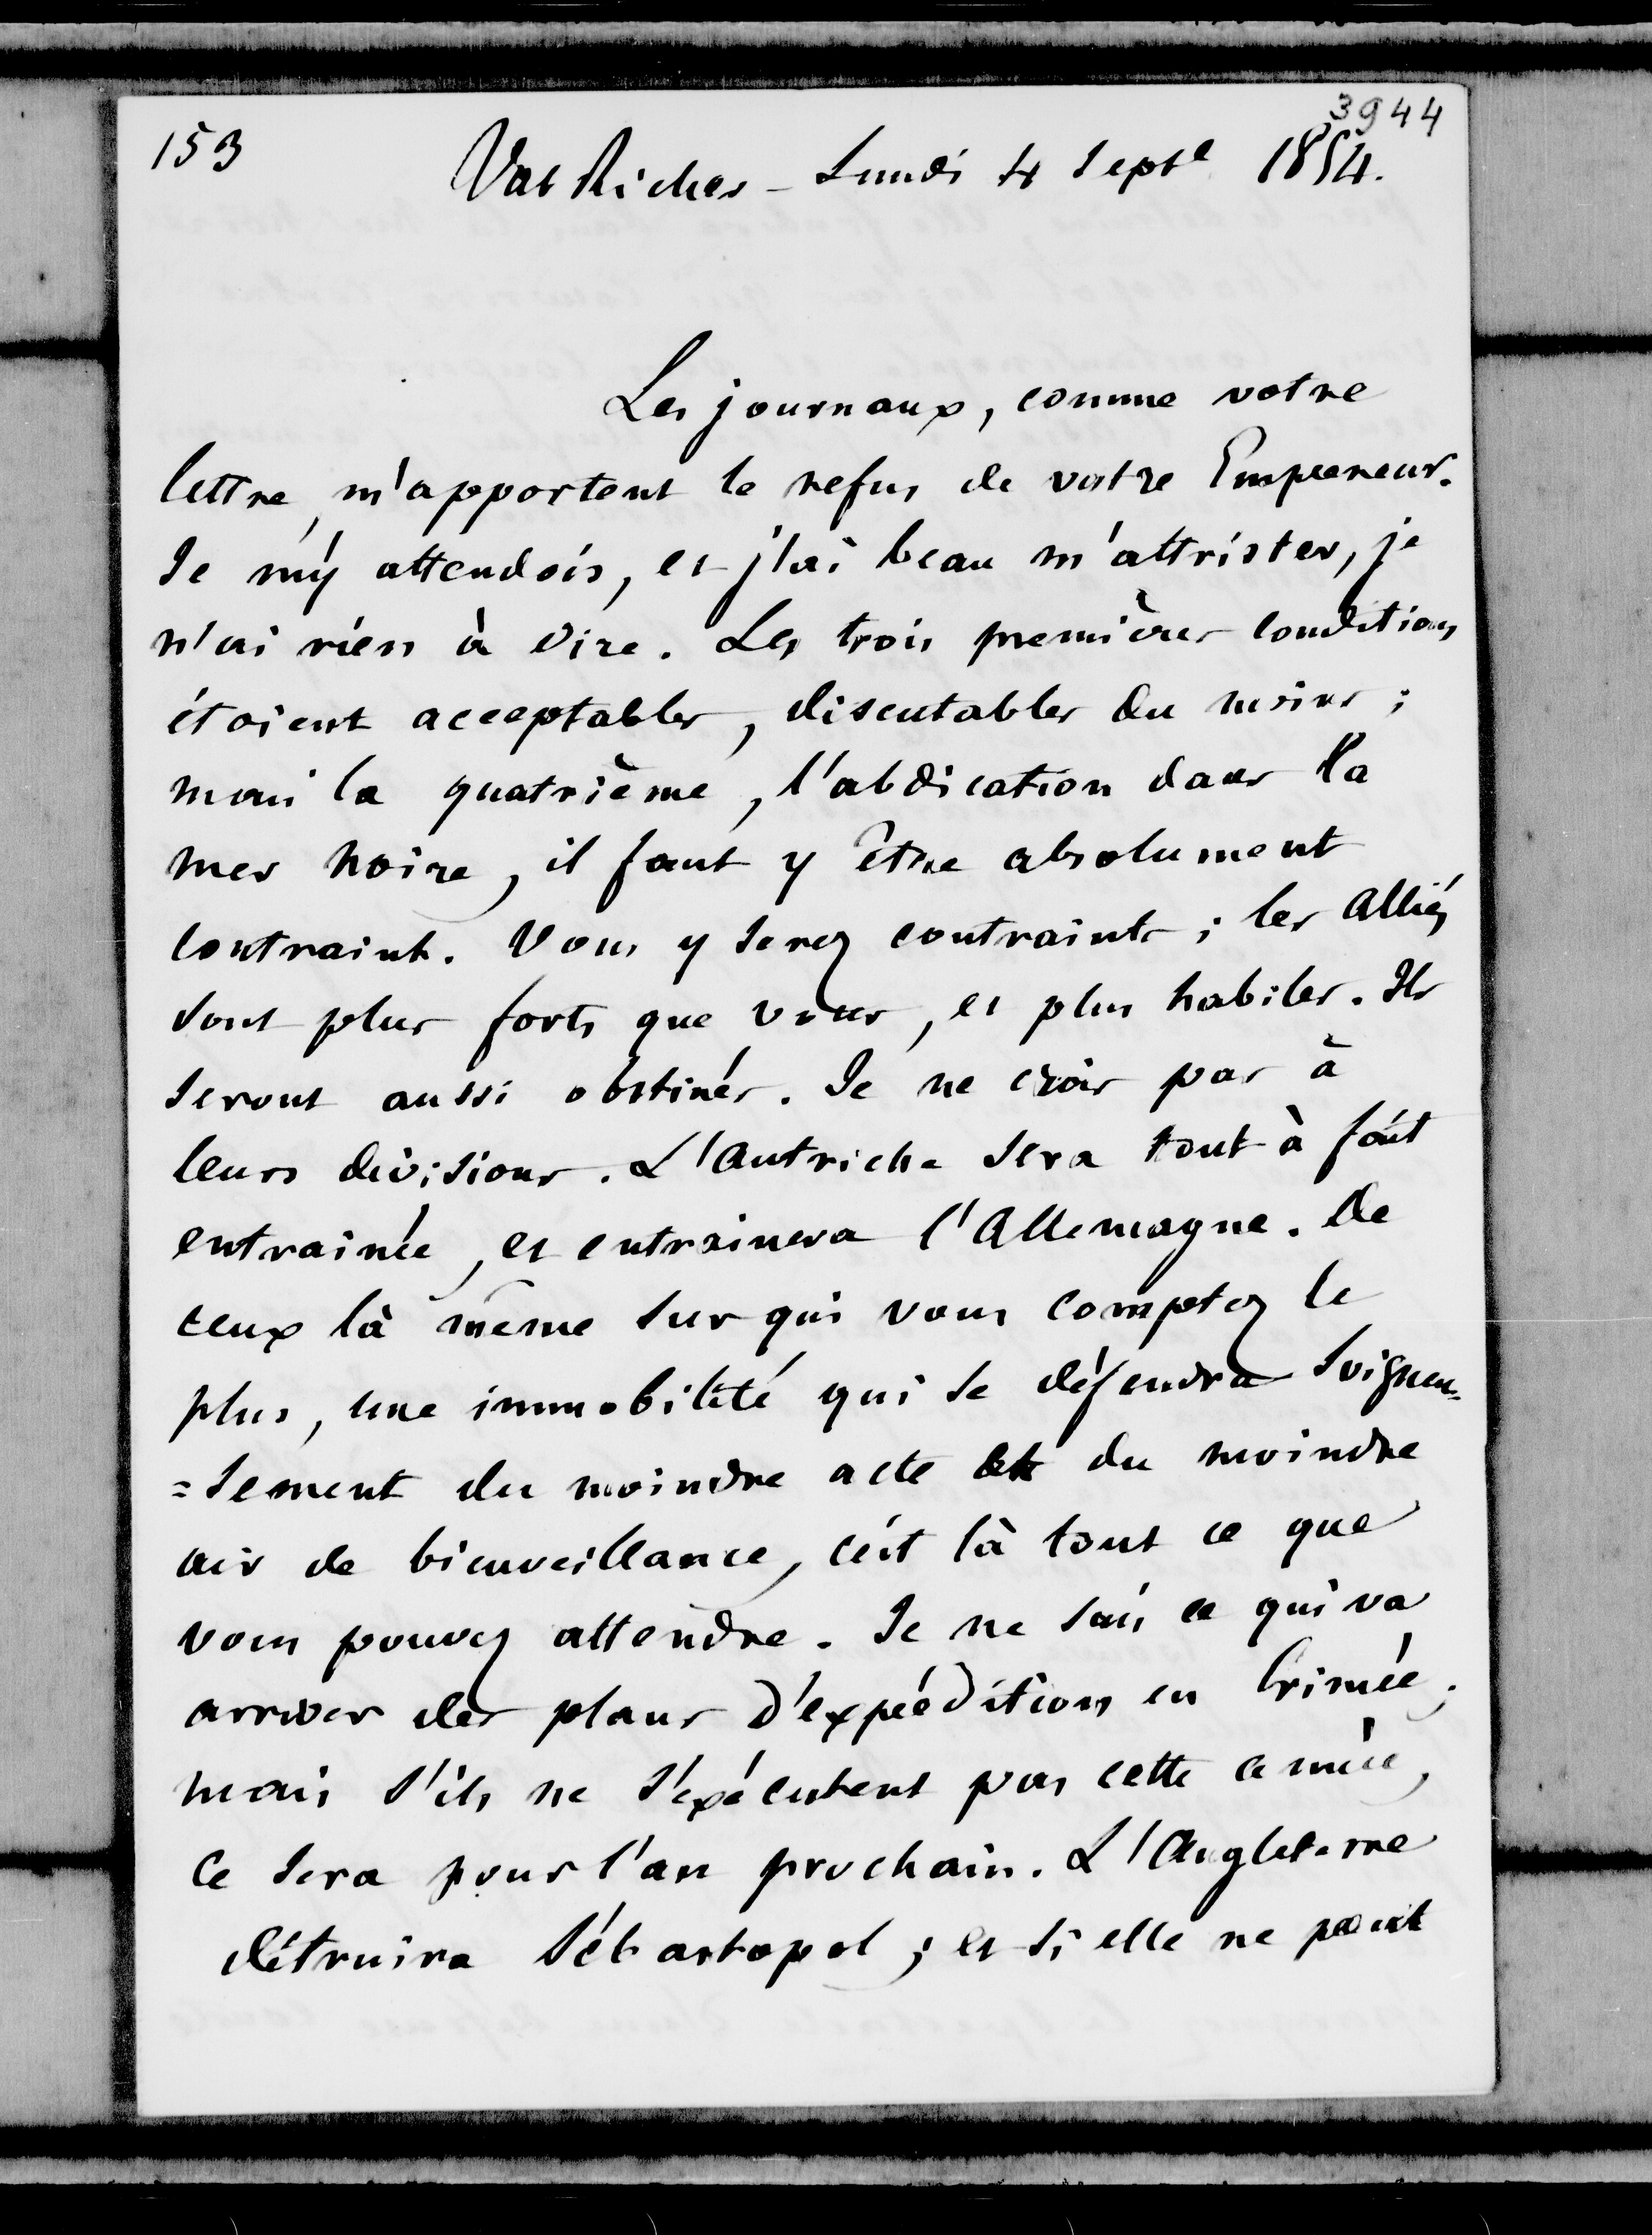 3944
153
Val Richer - Lundi 4 Septe 1854.
Les journaux, comme votre
lettre, m'apportent le refus de votre Empereur.
Je m'y attendois, et j'ai beau m'attrister, je
n'ai rien à dire. Les trois premières conditions
étoient acceptables, discutables du moins ;
mais la quatrième, l'abdication dans la
mer noire, il faut y être absolument
contraint. Vous y serez contraints ; les Alliés
sont plus forts que vous, et plus habiles. Ils
seront aussi obstinés. Je ne crois pas à
leurs divisions. L'Autriche sera tout à fait
entrainée, et entrainera l'Allemagne. De
ceux là même sur qui vous comptez le
plus, une immobilité qui se défendra soigneu=
=sement du moindre acte et du moindre
air de bienveillance, c'est là tout ce que
vous pouvez attendre. Je ne sais ce qui va
arriver des plans d'expédition en Crimée ;
mais s'ils ne s'exécutent pas cette année,
ce sera pour l'an prochain. L'Angleterre
détruira Sébastopol ; et si elle ne peut